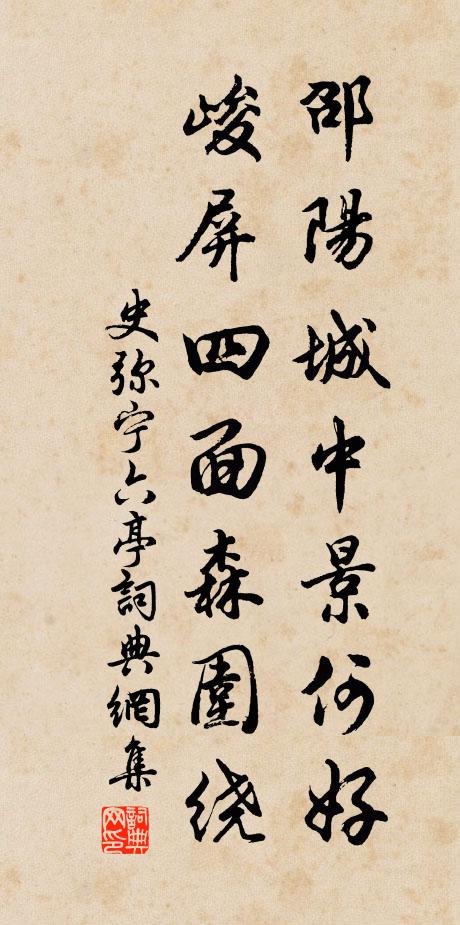 邵陽城中景何好
峻屏四面森圍绕
史弥宁六亭詞典網集
詞典网印